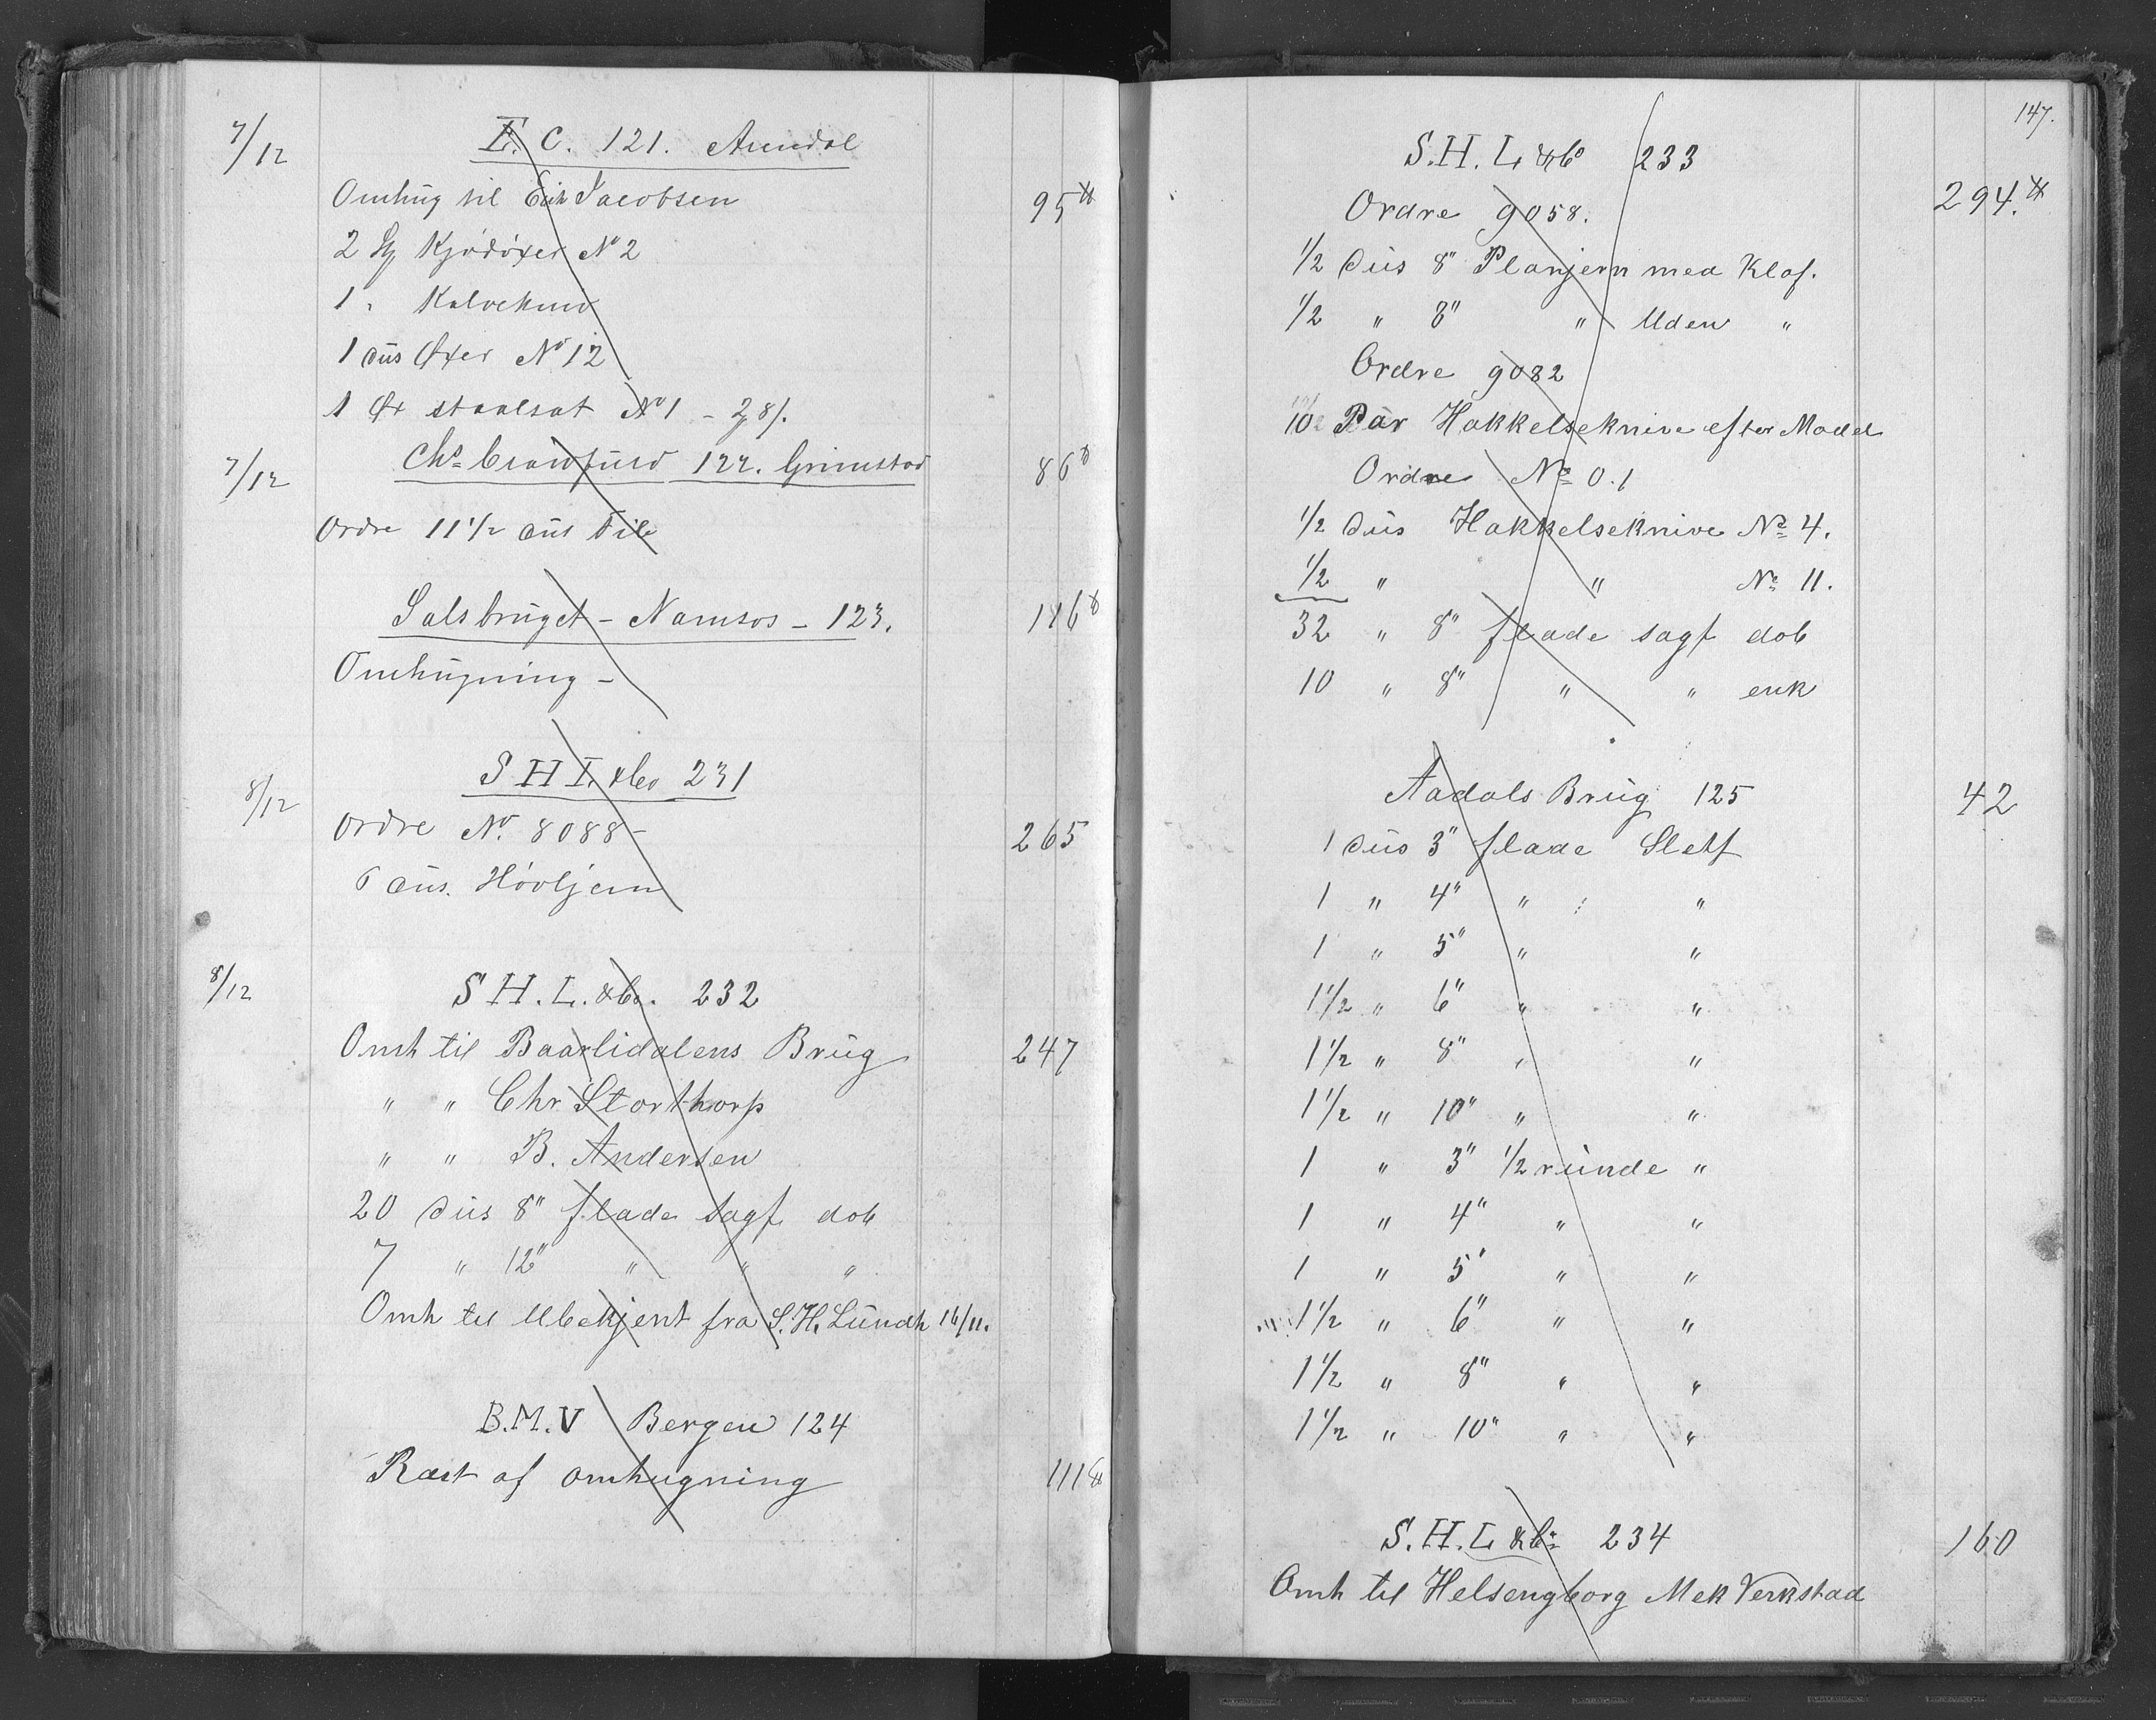 7/12 E. C. 121. Arendal
Omhug til Erik Jacobsen 95 ℔
2 St Kjödöxer No 2
1 " Kalvekniv
1 dus Öxer No 12
1 Öx staalsat No 1 - 28/.
7/12 Chs Crawfurd 122. Grimstad 86 ℔
Ordre 11 1/2 dus File
Salsbruget - Namsos - 123. 116 ℔
Omhugning -
8/12 S H L & Co 231
Ordre No. 8088 - 265
6 dus. Hövljern
8/12 S H. L. & Co. 232
Omh til Baarlidalens Brug 247
" " Chr Storthorp
" " B. Andersen
20 dus 8" flade sagf dob
7 " 12" " " "
Omh til Ubekjent fra S. H. Lundh 16/11.
B. M. V Bergen 124
Rest af omhugning 111 ℔
147.
S. H. L & Co 233
Ordre 9058. 294. ℔
1/2 dus 8" Planjern med Klaf.
1/2 " 8" " Uden "
Ordre 9082
10 Par Hakkelseknive efter Model
Ordre No 0.1
1/2 dus Hakkelseknive No 4.
1/2 " " No 11.
32 " 8" flade sagf dob
10 " 8" " " enk
Aadals Brug 125 42
1 dus 3" flade Sletf
1 " 4" " "
1 " 5" " "
1 1/2 " 6" " "
1 1/2 " 8" " "
1 1/2 " 10" " "
1 " 3" 1/2 runde "
1 " 4" " "
1 " 5" " "
1 1/2 " 6" " "
1 1/2 " 8" " "
1 1/2 " 10" " "
S. H. L & Co 234 160
Omh til Helsengborg Mek Verkstad